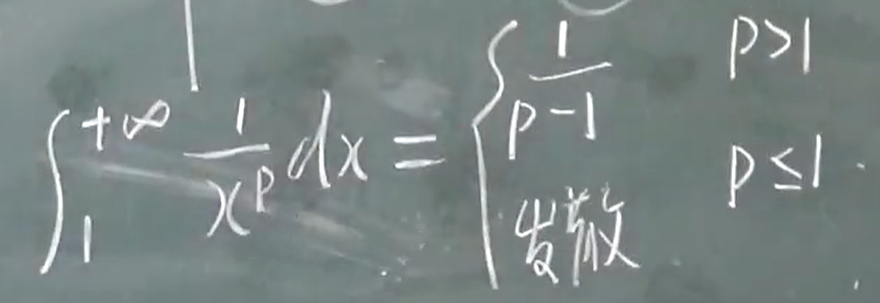 ∫₁^{+∞} 1/x^p dx = { 1/(p-1)  p>1
发散  p≤1.